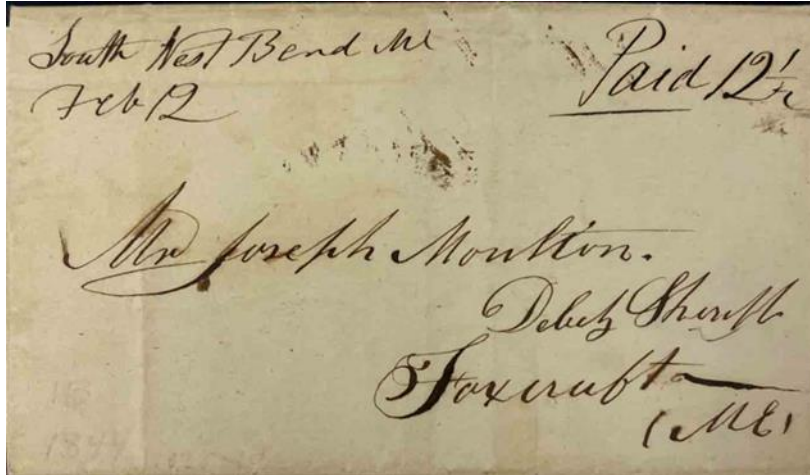 South West Bend Me
Feb 12
Paid 12½
Mr Joseph Moulton.
Debuty Sheriff
Foxcroft
(ME)
1844